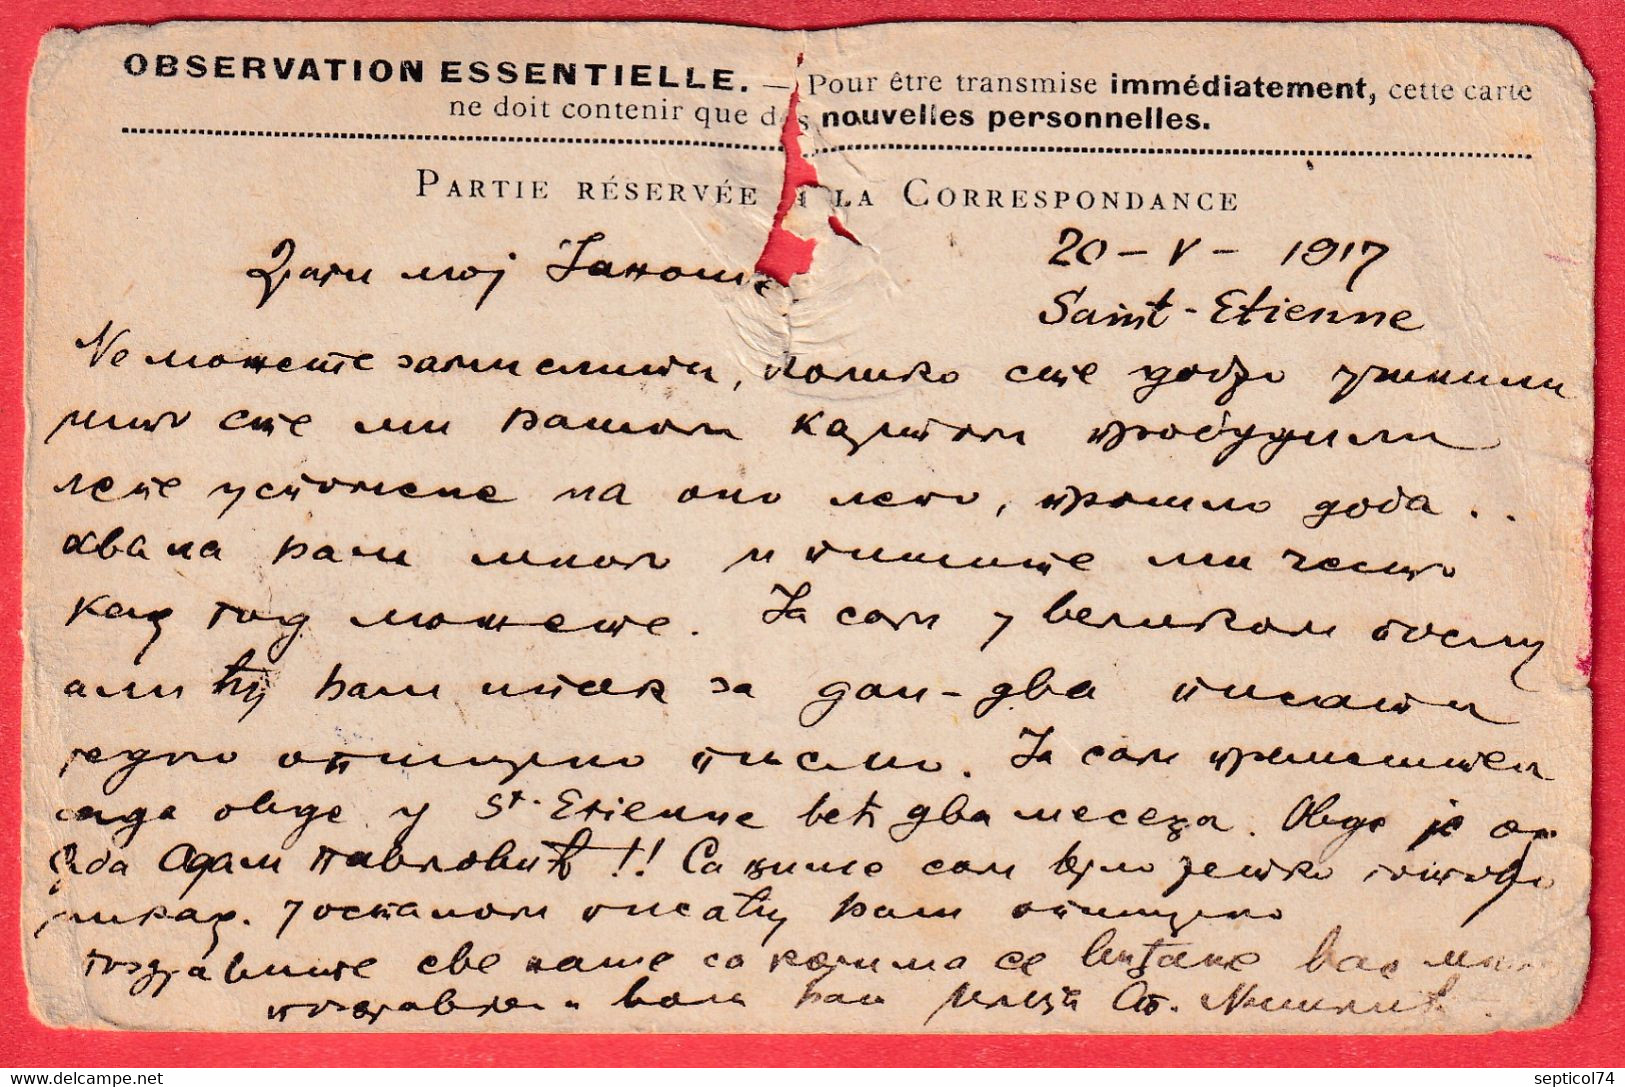 OBSERVATION ESSENTIELLE. — Pour être transmise immédiatement, cette carte
ne doit contenir que des nouvelles personnelles.
PARTIE RÉSERVÉE À LA CORRESPONDANCE
20 - V - 1917
Драги мој Јаноше
Saint-Etienne
Не можете замислити, колико сте добро учинили
што сте ми вашом картом пробудили
лепе успомене на оно лепо, прошло доба..
хвала вам много и пишите ми често
кад год можете. Ја сам у великом послу
али ћу вам ипак за дан-два писати
једно опширно писмо. Ја сам премештен
овде у St. Etienne већ два месеца. Овде је
Адам Павловић!! Са њиме сам врло ретко
у осталом писаћу вам опширно
поздравите све наше са којима се виђате вас много
поздравља и воли ваш
septicol74